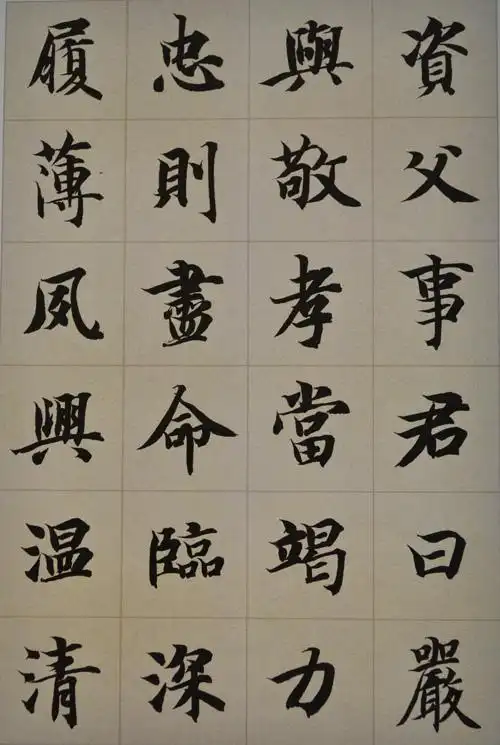 資父事君曰嚴
與敬孝當竭力
忠則盡命臨深
履薄夙興温清